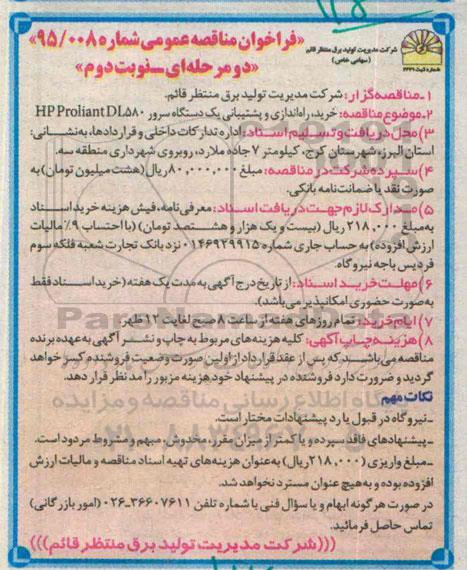 شرکت مدیریت تولید برق منتظر قائم
(سهامی خاص)
«فراخوان مناقصه عمومی شماره ۹۵/۰۰۸»
«دو مرحله‌ای ـ نوبت دوم»
۱ـ مناقصه‌گزار: شرکت مدیریت تولید برق منتظر قائم.
۲ـ موضوع مناقصه: خرید، راه‌اندازی و پشتیبانی یک دستگاه سرور HP Proliant DL۵۸۰
۳) محل دریافت و تسلیم اسناد: اداره تدارکات داخلی و قراردادها، به‌نشانی:
استان البرز، شهرستان کرج، کیلومتر ۷ جاده ملارد، روبروی شهرداری منطقه سه.
۴) سپرده شرکت در مناقصه: مبلغ ۸۰,۰۰۰,۰۰۰ ریال (هشت میلیون تومان) به
صورت نقد یا ضمانت‌نامه بانکی.
۵) مدارک لازم جهت دریافت اسناد: معرفی‌نامه، فیش هزینه خرید اسناد
به‌مبلغ ۲۱۸,۰۰۰ ریال (بیست و یک هزار و هشتصد تومان) (با احتساب ۹٪ مالیات
ارزش افزوده) به حساب جاری شماره ۰۱۴۶۹۲۹۹۱۵ نزد بانک تجارت شعبه فلکه سوم
فردیس یا جه نیروگاه.
۶) مهلت خرید اسناد: از تاریخ درج آگهی به مدت یک هفته (خرید اسناد فقط
به‌صورت حضوری امکانپذیر می‌باشد).
۷) ایام خرید: تمام روزهای هفته از ساعت ۸ صبح لغایت ۱۲ ظهر.
۸) هزینه چاپ آگهی: کلیه هزینه‌های مربوط به چاپ و نشر آگهی به‌عهده برنده
مناقصه می‌باشد که پس از عقد قرارداد از اولین صورت وضعیت فروشنده کسر خواهد
گردید و ضرورت دارد فروشنده در پیشنهاد خود هزینه مزبور را مد نظر قرار دهد.
نکات مهم
ـ نیروگاه در قبول یا رد پیشنهادات مختار است.
ـ پیشنهادهای فاقد سپرده و یا کمتر از میزان مقرر، مخدوش، مبهم و مشروط مردود است.
ـ مبلغ واریزی (۲۱۸,۰۰۰ ریال) به‌عنوان هزینه‌های تهیه اسناد مناقصه و مالیات ارزش
افزوده بوده و به‌هیچ عنوان مسترد نخواهد شد.
در صورت هرگونه ابهام و یا سؤال فنی با شماره تلفن ۳۶۶۰۷۶۱۱-۰۲۶ (امور بازرگانی)
تماس حاصل فرمائید.
(((شرکت مدیریت تولید برق منتظر قائم)))